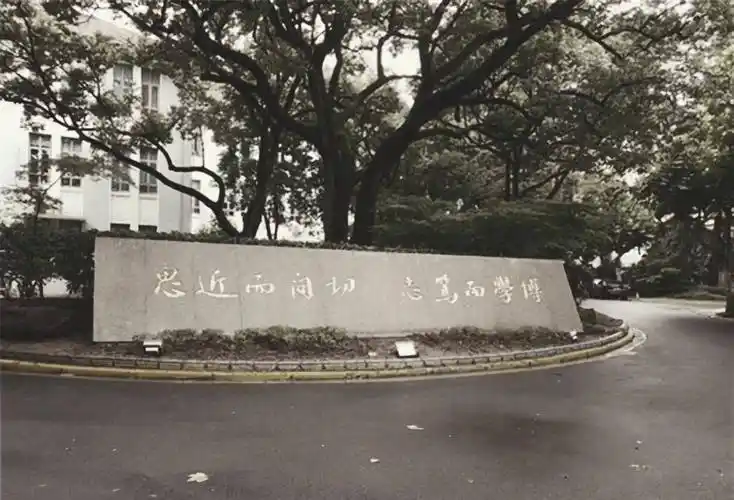 博學而篤志 切問而近思